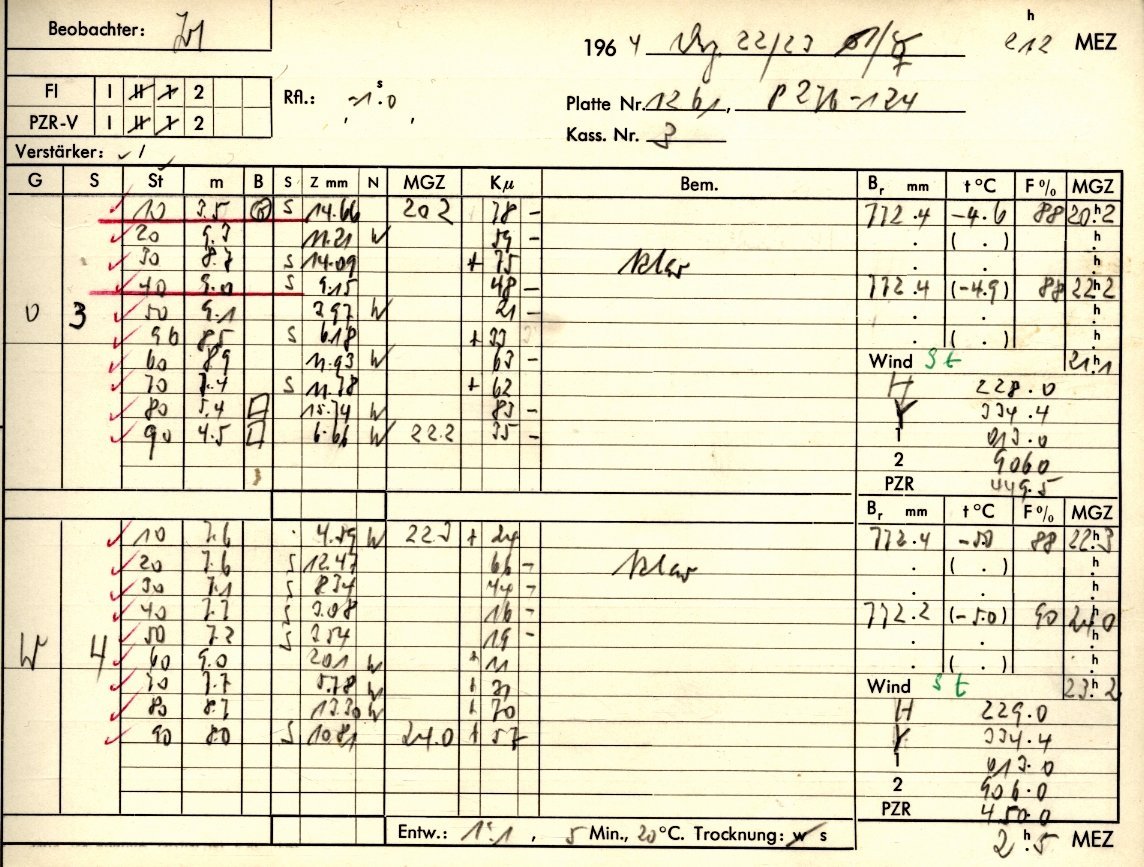 Beobachter:
196 4 22/23 h 212 MEZ
FI I II 1 2
PZR-V I II 1 2
Rfl.: -1.0 s
Platte Nr. 1261, P 276-124
Kass. Nr. 3
Verstärker: √1
G S St m B S Z mm N MGZ Kμ Bem.
0 3
10 3.5 S 14.66 202 78 -
20 9.3 11.21 W 59 -
30 8.7 S 14.09 + 75 klar
40 9.0 S 9.15 48 -
50 9.1 3.97 W 21 -
96 8.5 S 6.18 + 33
60 8.9 11.93 W 63 -
70 7.4 S 11.78 + 62
80 5.4 15.74 W 83 -
90 4.5 6.66 W 222 35 -
Br mm t °C F % MGZ
772.4 -4.6 88 20h2
. ( . ) h
. . h
772.4 (-4.9) 88 22h2
. . h
. ( . ) h
Wind St 21h1
H 228.0
Y 334.4
1 013.0
2 9060
PZR 449.5
W 4
10 7.6 4.59 W 223 + 24
20 7.6 S 12.47 66 - klar
30 7.1 S 8.34 44 -
40 7.7 S 3.08 16 -
50 7.2 S 3.54 19 -
60 9.0 201 W + 11
70 7.7 5.78 W + 31
80 8.7 13.30 W + 70
90 80 S 1081 24.0 + 57
Br mm t °C F % MGZ
772.4 -5.0 88 22h3
. ( . ) h
. . h
772.2 (-5.0) 90 24h0
. . h
. ( . ) h
Wind St 23h2
H 229.0
Y 334.4
1 013.0
2 906.0
PZR 450.0
Entw.: 1:1, 5 Min., 20 °C. Trocknung: w s
2h.5 MEZ